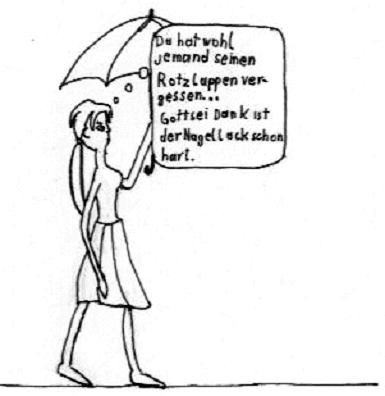 Da hat wohl
jemand seinen
Rotzlappen ver-
gessen...
Gottsei Dank ist
der Nagellack schon
hart.